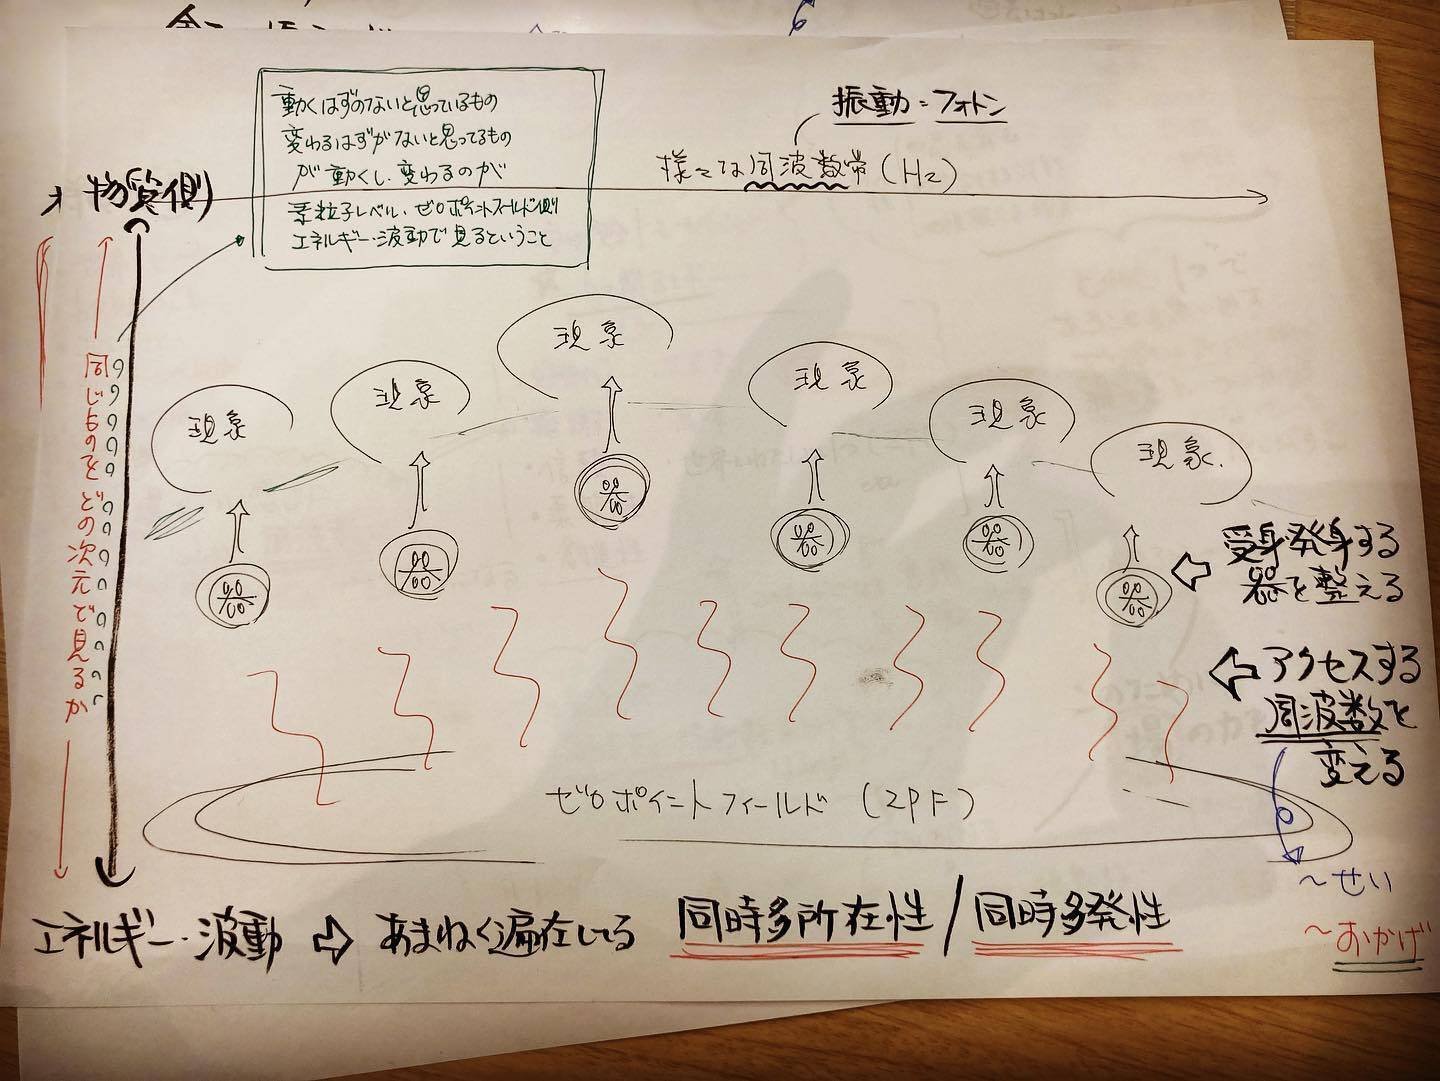 動くはずのないと思っているもの
変わるはずがないと思ってるもの
が動くし、変わるのが
素粒子レベル・ゼロポイントフィールド側
エネルギー・波動で見るということ
振動=フォトン
様々な周波数帯(Hz)
物質側
同じものをどの次元で見るか
現象
現象
現象
現象
現象
現象
器
器
器
器
器
器
受身発身する
器を整える
アクセスする
周波数を
変える
ゼロポイントフィールド (ZPF)
〜せい
〜おかげ
エネルギー・波動 ⇨ あまねく遍在してる 同時多所在性/同時多発性